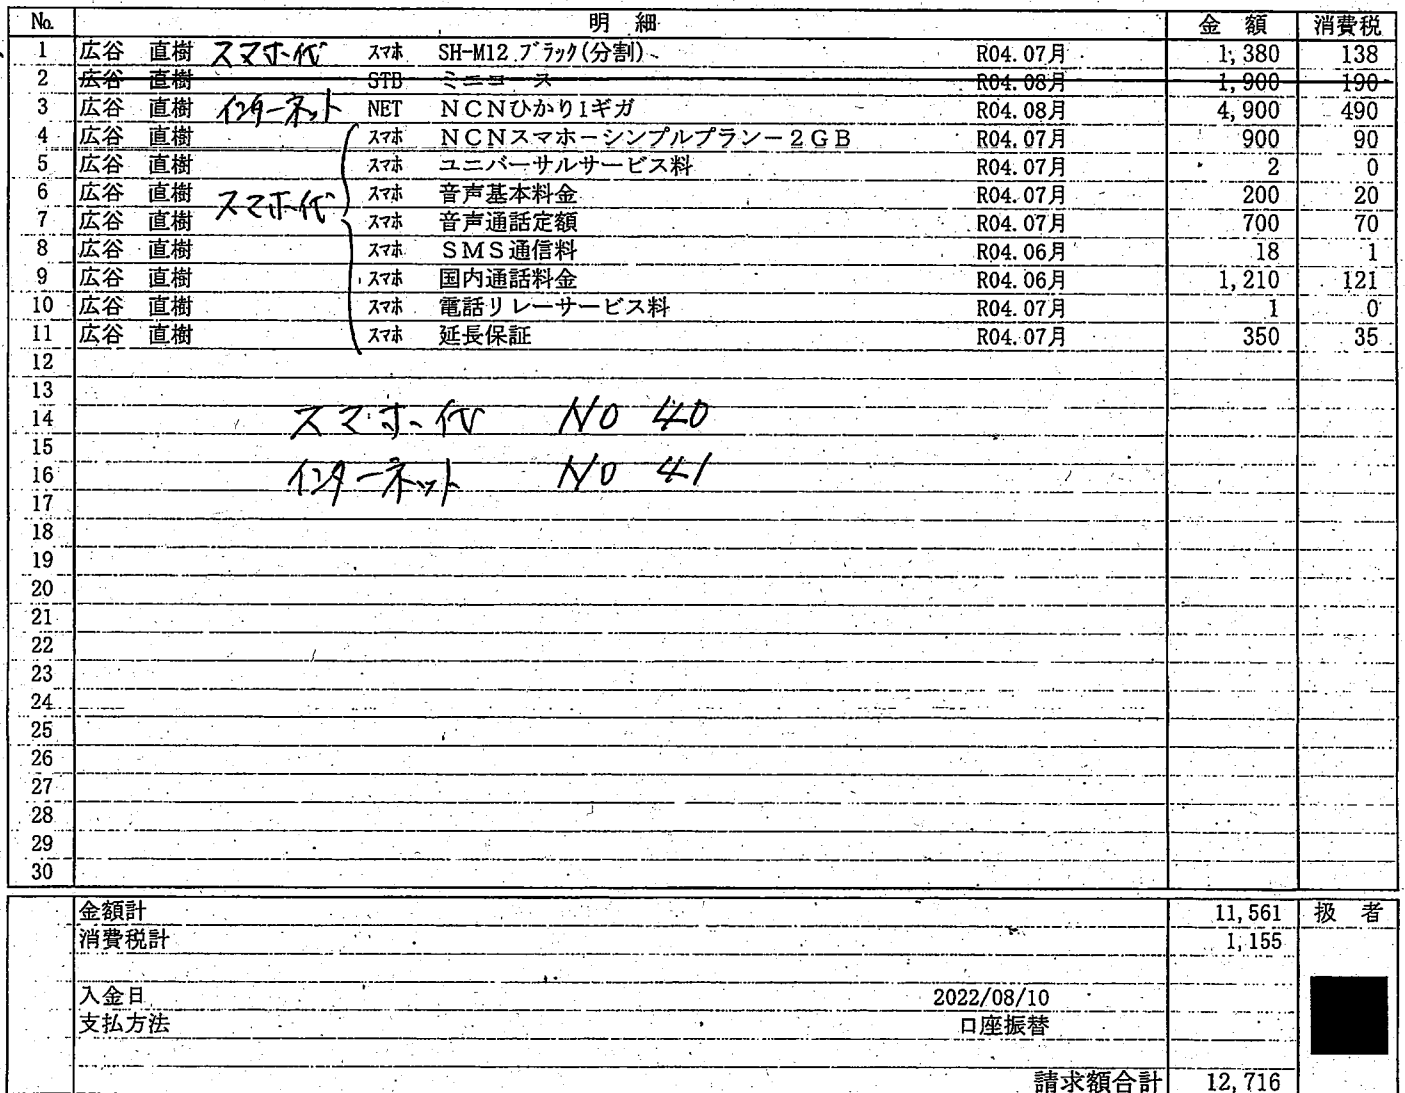 No. 明 細 金 額 消費税
1 広谷 直樹 スマホ代 スマホ SH-M12 ブラック(分割) R04.07月 1,380 138
2 広谷 直樹 STB ミニコース R04.08月 1,900 190
3 広谷 直樹 インターネット NET NCNひかり1ギガ R04.08月 4,900 490
4 広谷 直樹 スマホ NCNスマホーシンプルプランー2GB R04.07月 900 90
5 広谷 直樹 スマホ ユニバーサルサービス料 R04.07月 2 0
6 広谷 直樹 スマホ代 スマホ 音声基本料金 R04.07月 200 20
7 広谷 直樹 スマホ 音声通話定額 R04.07月 700 70
8 広谷 直樹 スマホ SMS通信料 R04.06月 18 1
9 広谷 直樹 スマホ 国内通話料金 R04.06月 1,210 121
10 広谷 直樹 スマホ 電話リレーサービス料 R04.07月 1 0
11 広谷 直樹 スマホ 延長保証 R04.07月 350 35
12
13
14 スマホ代 NO 40
15
16 インターネット NO 41
17
18
19
20
21
22
23
24
25
26
27
28
29
30
金額計 11,561 扱 者
消費税計 1,155
入金日 2022/08/10
支払方法 口座振替
請求額合計 12,716